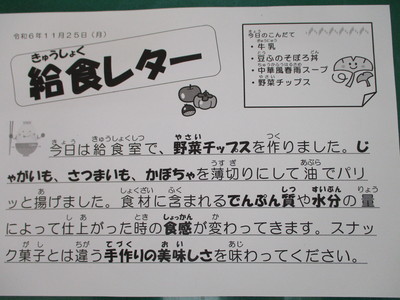 令和6年11月25日（月）
きゅうしょく
給食レター
今日のこんだて
・牛乳
・豆ふのそぼろ丼
・中華風春雨スープ
・野菜チップス
今日は給食室で、野菜チップスを作りました。じ
ゃがいも、さつまいも、かぼちゃを薄切りにして油でパリ
ッと揚げました。食材に含まれるでんぷん質や水分の量
によって仕上がった時の食感が変わってきます。スナッ
ク菓子とは違う手作りの美味しさを味わってください。